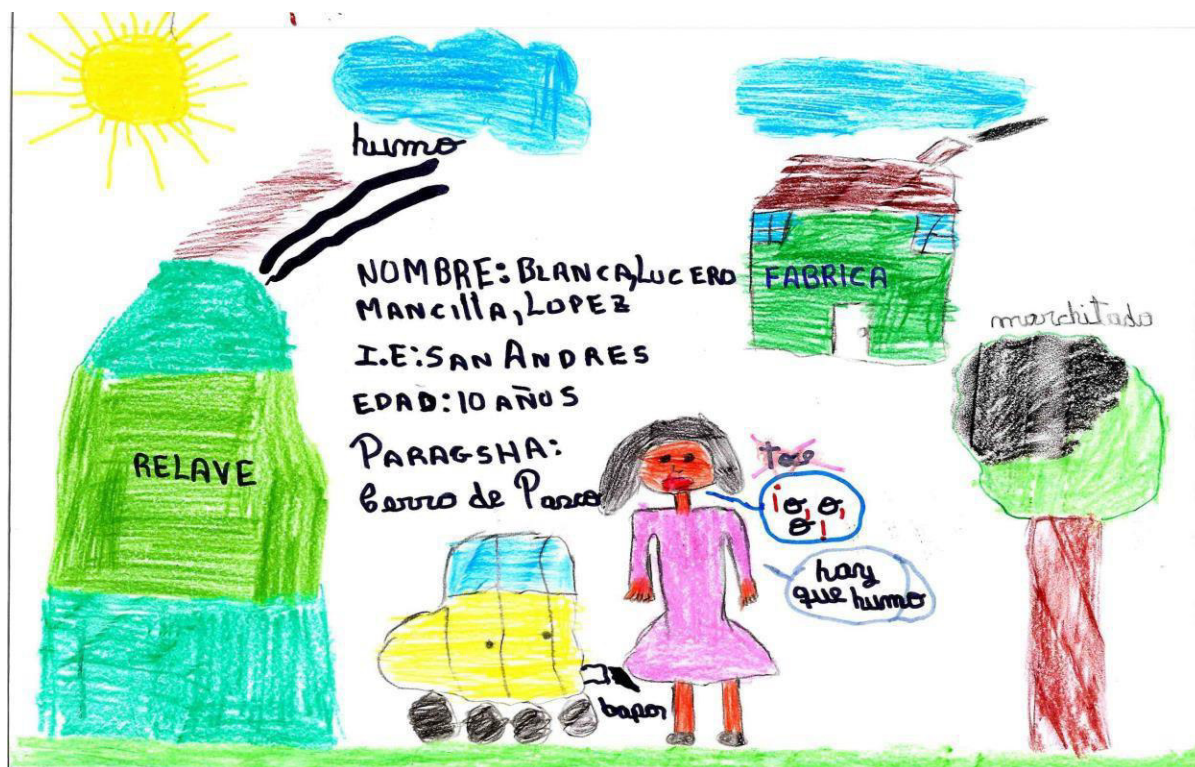 humo
NOMBRE: BLANCA, LUCERO
MANCILLA, LOPEZ
I.E: SAN ANDRES
EDAD: 10 AÑOS
PARAGSHA:
Cerro de Pasco
FABRICA
marchitado
RELAVE
tos
¡o, o,
o!
hay
que humo
bapor